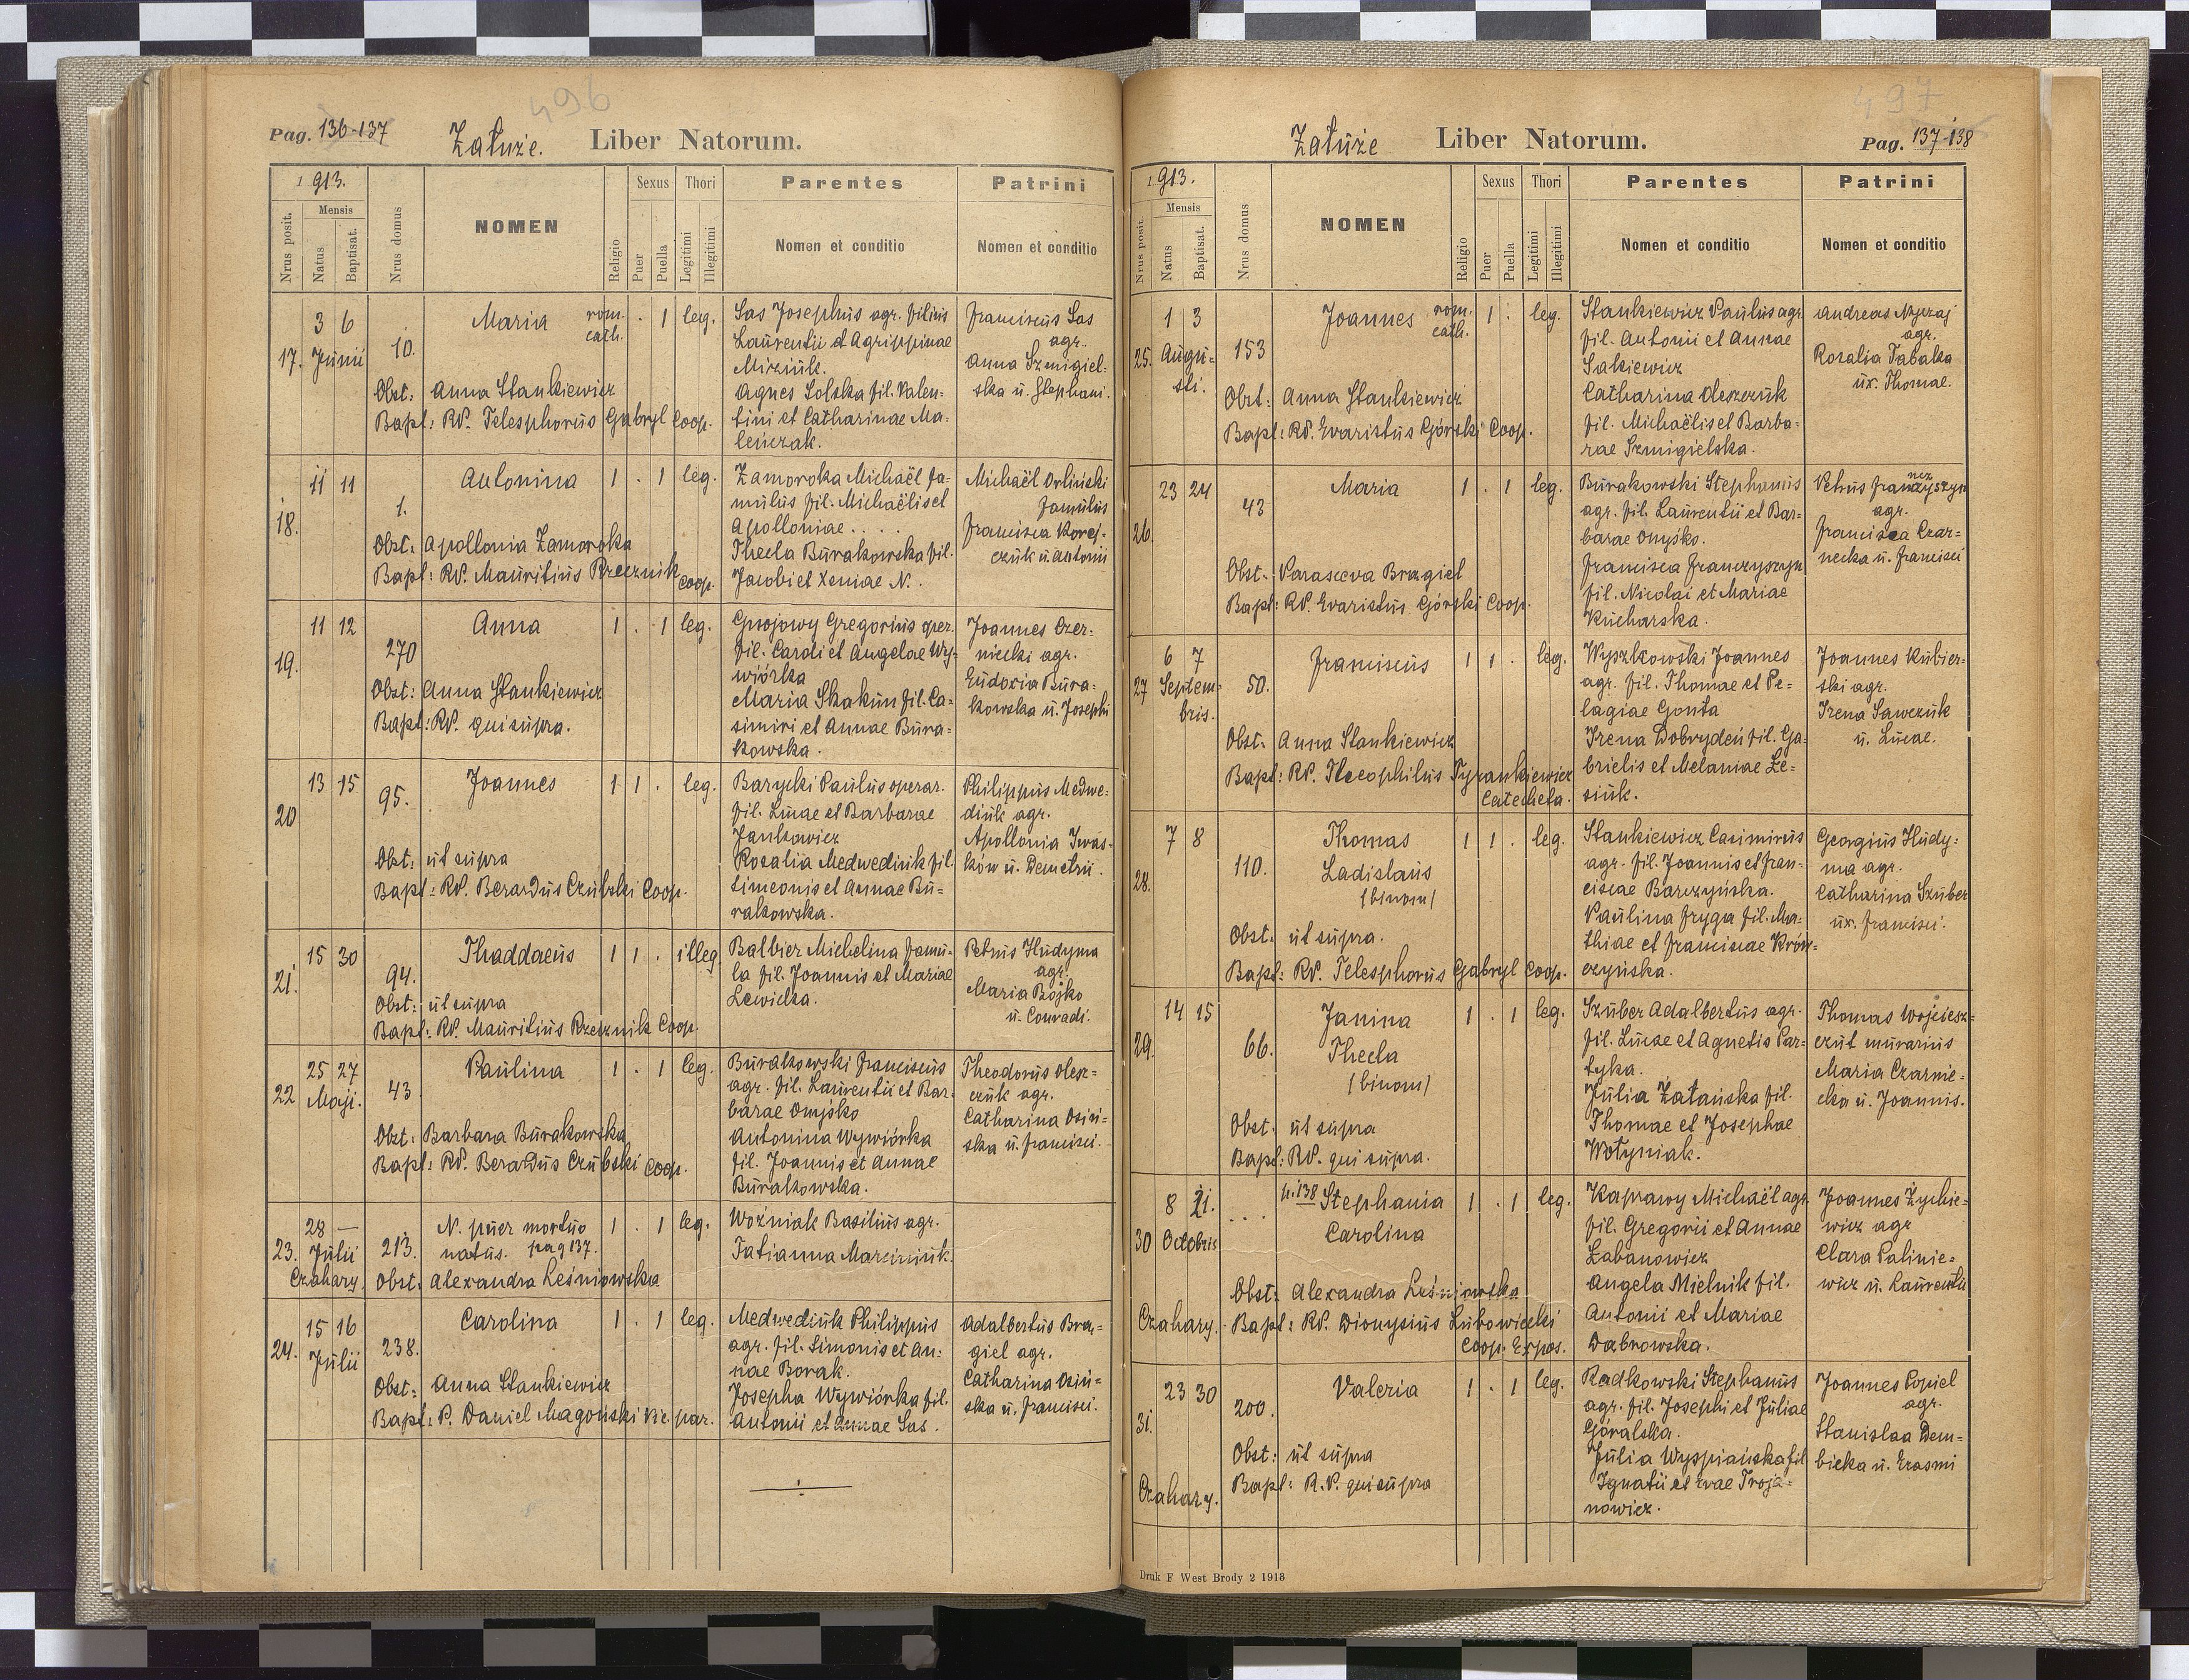 496
Pag. 136-137 Załuże. Liber Natorum.
1913.
Nrus posit.
Mensis
Natus
Baptisat.
Nrus domus
NOMEN
Religio
Sexus
Puer
Puella
Thori
Legitimi
Illegitimi
Parentes
Nomen et conditio
Patrini
Nomen et conditio
17.
3 6
Junii
10.
Maria
rom.
cath.
. 1 leg.
Obst: Anna Stankiewicz
Bapt: RP. Telesphorus Gabryl Coop.
Sas Josephus agr. filius
Laurentii et Agrippinae
Mirziuk.
Agnes Solska fil. Valen-
tini et Catharinae Ma-
leńczak.
Franciscus Sas
agr.
Anna Szmigiel-
ska u. Stephani.
18.
11 11
1.
Antonina
1 . 1 leg.
Obst: Apollonia Zamoroka
Bapt: RP. Mauritius Rzeznik
Coop.
Zamoroka Michaël fa-
mulus fil. Michaëlis et
Apolloniae . . . .
Thecla Burakowska fil.
Jacobi et Xeniae N.
Michaël Orliński
famulus
Francisca Korej-
czuk u. Antonii
19.
11 12
270
Anna
1 . 1 leg.
Obst: Anna Stankiewicz
Bapt: RP. qui supra.
Gnojowy Gregorius oper.
fil. Caroli et Angelae Wy-
wiórka
Maria Skakun fil. Ca-
simiri et Annae Bura-
kowska.
Joannes Czer-
niecki agr.
Eudoxia Bura-
kowska u. Josephi
20
13 15
95.
Joannes
1 1 . leg.
Obst: ut supra
Bapt: RP. Berardus Czubski Coop.
Barycki Paulus operar.
fil. Lucae et Barbarae
Jankowicz
Rosalia Medwediuk fil.
Simeonis et Annae Bu-
rakowska.
Philippus Medwe-
diuk agr.
Apollonia Iwas-
ków u. Demetrii.
21.
15 30
94.
Thaddaeus
1 1 . illeg.
Obst: ut supra
Bapt: RP. Mauritius Rzeznik Coop.
Balbier Michelina famu-
la fil. Joannis et Mariae
Lewicka.
Petrus Hudyma
agr.
Maria Bojko
u. Conradi.
22
25 27
Maji.
43
Paulina
1 . 1 leg.
Obst: Barbara Burakowska
Bapt: RP. Berardus Czubski Coop.
Burakowski Franciscus
agr. fil. Laurentii et Bar-
barae Onyśko
Antonina Wywiórka
fil. Joannis et Annae
Burakowska.
Theodorus Olesz-
czuk agr.
Catharina Osiń-
ska u. Francisci.
23.
28 —
Julii
Czahary
213.
N. puer mortuo
natus. pag 137.
1 . 1 leg.
Obst: Alexandra Leśniowska
Woźniak Basilius agr.
Tatianna Marciniuk.
24.
15 16
Julii
238.
Carolina
1 . 1 leg.
Obst: Anna Stankiewicz
Bapt: P. Daniel Magoński Vic. par.
Medwediuk Philippus
agr. fil. Simonis et An-
nae Borak.
Josepha Wywiórka fil.
Antonii et Annae Sas.
Adalbertus Bra-
giel agr.
Catharina Osiń-
ska u. Francisci.
497
Załuże Liber Natorum. Pag. 137-138
1913.
Nrus posit
Mensis
Natus
Baptisat.
Nrus domus
NOMEN
Religio
Sexus
Puer
Puella
Thori
Legitimi
Illegitimi
Parentes
Nomen et conditio
Patrini
Nomen et conditio
25.
1 3
Augu-
sti.
153
Joannes
rom.
cath.
1 . leg.
Obst: Anna Stankiewicz
Bapt: RP. Evaristus Górski Coop.
Stankiewicz Paulus agr.
fil. Antonii et Annae
Sakiewicz
Catharina Oleszczuk
fil. Michaëlis et Barba-
rae Szmigielska.
Andreas
agr.
Rosalia Tabaka
ux. Thomae.
26.
23 24
43
Maria
1 . 1 leg.
Obst: Parasceva Bragiel
Bapt: RP. Evaristus Górski Coop.
Burakowski Stephanus
agr. fil. Laurentii et Bar-
barae Onyśko.
Francisca Franczyszyn
fil. Nicolai et Mariae
Kucharska.
Petrus
agr.
Francisca Czar-
necka u. Francisci
27
6 7
Septem-
bris.
50.
Franciscus
1 1 . leg.
Obst: Anna Stankiewicz
Bapt: RP. Theophilus Tyrankiewicz
Catecheta.
Wyszkowski Joannes
agr. fil. Thomae et Pe-
lagiae Gonta
Irena Dobrydeń fil. Ga-
brielis et Melaniae Le-
siuk.
Joannes Kubier-
ski agr.
Irena Sawczuk
u. Lucae.
28.
7 8
110.
Thomas
Ladislaus
/binom/
1 1 . leg.
Obst: ut supra.
Bapt: RP. Telesphorus Gabryl Coop.
Stankiewicz Casimirus
agr. fil. Joannis et Fran-
ciscae Barczyńska.
Paulina Fryga fil. Ma-
thiae et Franciscae Krów-
czyńska.
Georgius Hudy-
ma agr.
Catharina Szuber
ux. Francisci.
29.
14 15
66.
Janina
Thecla
/binom/
1 . 1 leg.
Obst: ut supra
Bapt: RP. qui supra.
Szuber Adalbertus agr.
fil. Lucae et Agnetis Par-
tyka.
Julia Zatańska fil.
Thomae et Josephae
Wołyniak.
Thomas Wojciesz-
czut murarius
Maria Czarnie-
cka u. Joannis.
30
8 21.
Octobris
Czahary.
. . .
p. 138 Stephania
Carolina
1 . 1 leg.
Obst: Alexandra Leśniowska
Bapt: RP. Dionysius Lubowiecki
Coop. Expos.
Kaprawy Michaël agr.
fil. Gregorii et Annae
Labanowicz
Angela Mielnik fil.
Antonii et Mariae
Dabrowska.
Joannes Żychie-
wicz agr
Clara Palinie-
wicz u. Laurentii
31.
23 30
Czahary.
200.
Valeria
1 . 1 leg.
Obst: ut supra
Bapt: R.P. qui supra
Radkowski Stephanus
agr. fil. Josephi et Juliae
Góralska.
Julia Wyspiańska fil
Ignatii et Evae Troja-
nowicz.
Joannes Popiel
agr.
Stanislaa Dem-
bicka u. Erasmi
Druk F West Brody 2 1913